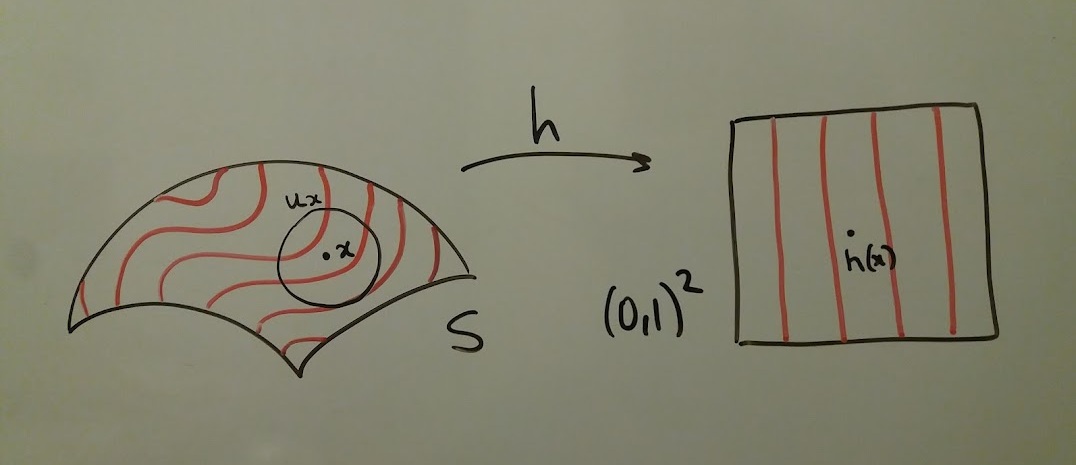 h
Ux
x
S
(0,1)²
h(x)